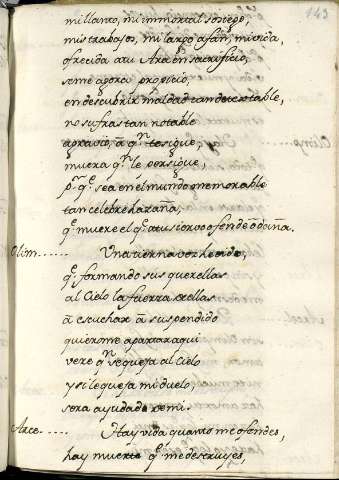 143
mi llanto, mi immortal sosiego,
mis trabajos, mi largo afan, mi vida,
ofrecida a tu Ara en sacrificio,
seme agora propicio,
en descubrir maldad tan detestable,
no sufras tan notable
agravio, à qn te sigue,
muera qn le persigue,
pa qe sea en el mundo memorable
tan celebre hazaña,
qe muere el qe a tu siervo ofende ò daña.
Olim...... Una tierna voz he oido,
qe formando sus querellas
al Cielo la fuerza
à escuchar à suspendido
quierome apartar aqui
vere qn se queja al Cielo
y si le queja mi duelo,
sera ayudado de mi.
Arce...... Hay vida quanto me ofendes,
hay muerte qe me destruyes,